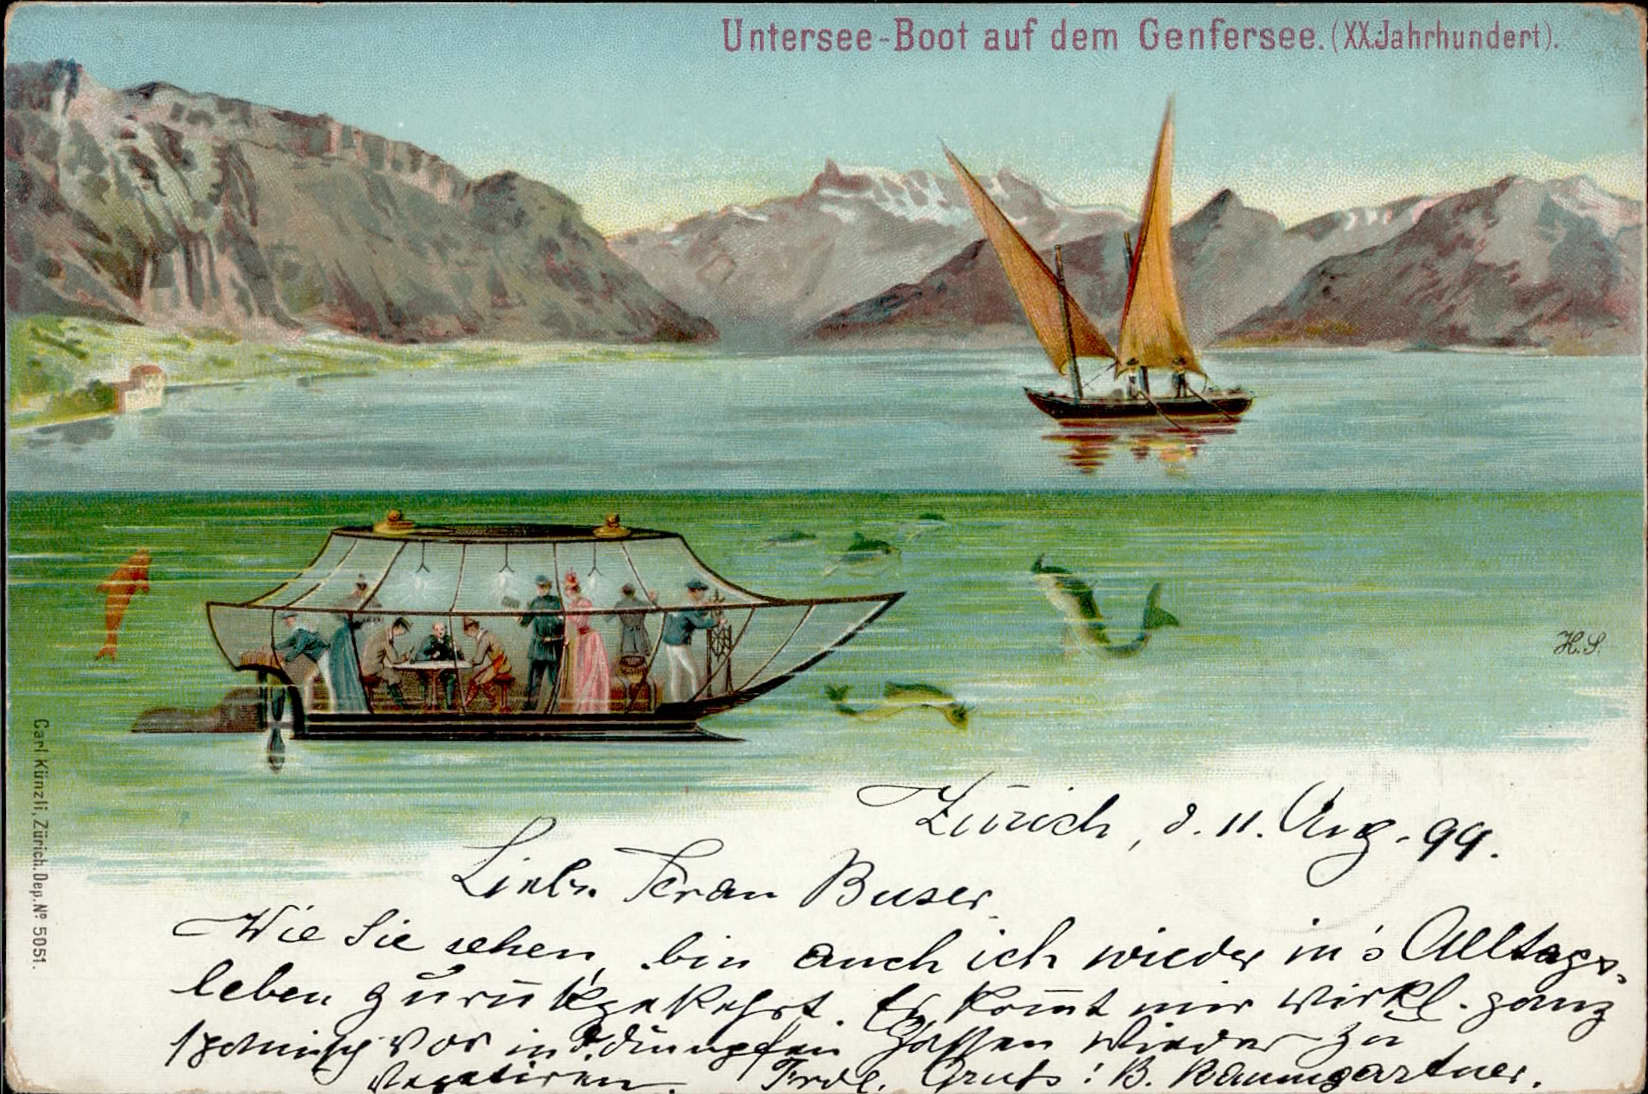 Untersee-Boot auf dem Genfersee. (XX. Jahrhundert).
H. S.
Carl Künzli, Zürich. Dep. Nº 5051.
Zürich, d. 11. Aug. 99.
Liebe Frau Buser
Wie Sie sehen, bin auch ich wieder in's Alltags-
leben zurückgekehrt. Es kommt mir wirkl. ganz
spanisch vor in d. dumpfen Gassen wieder zu
vegetiren. Frdl. Gruss! B. Baumgartner.